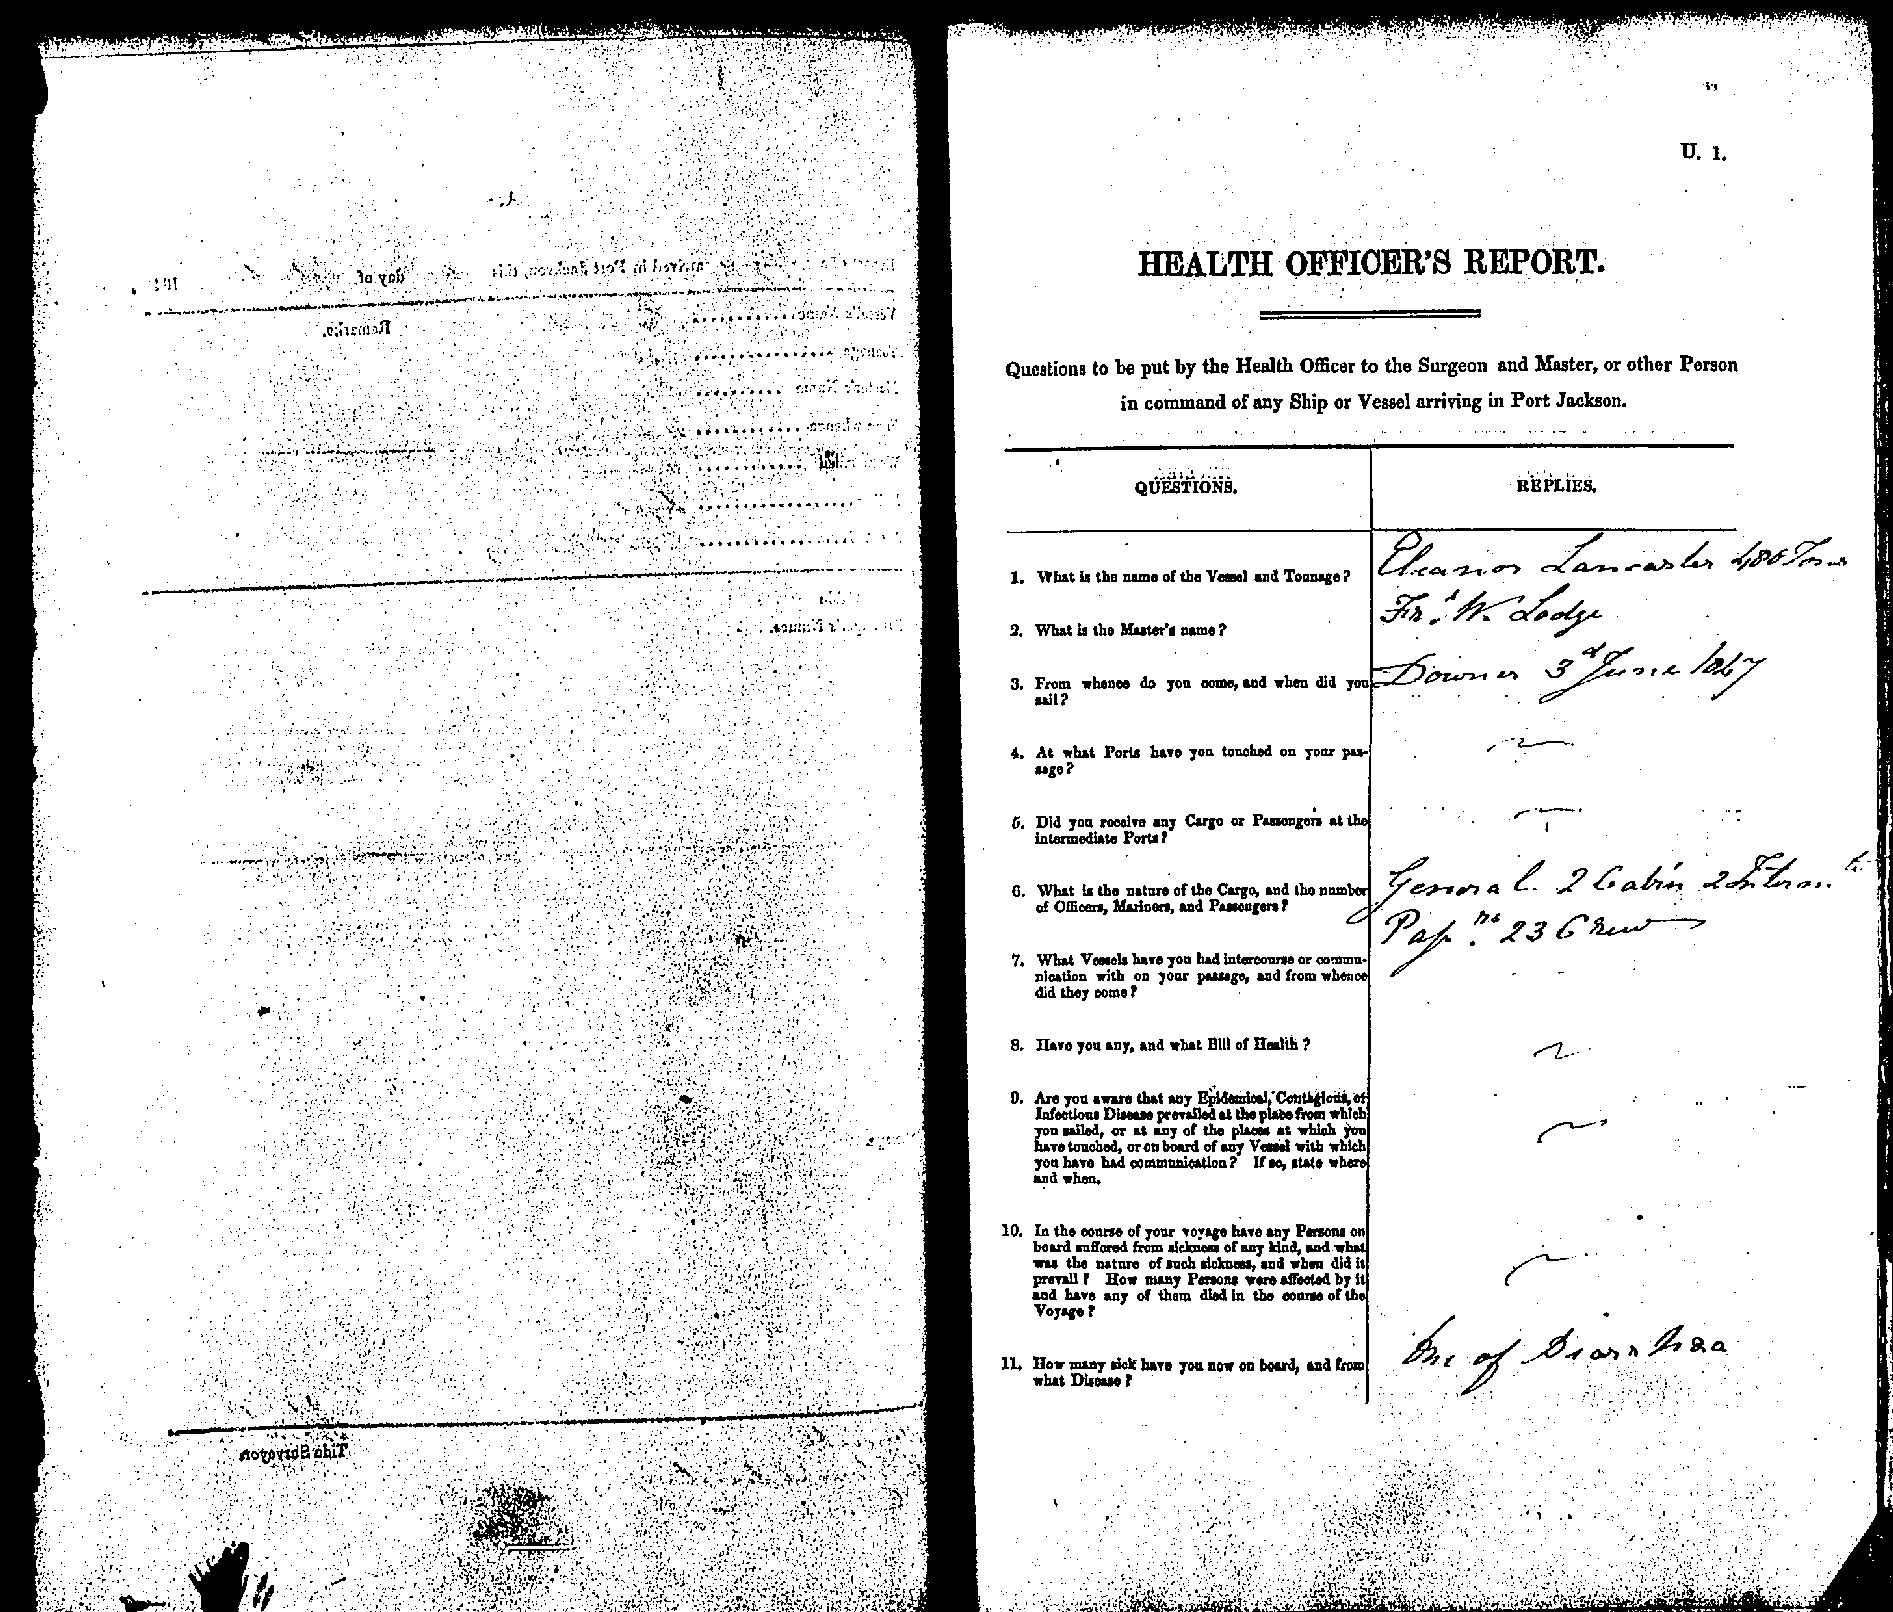 U. 1.
HEALTH OFFICER'S REPORT.
Questions to be put by the Health Officer to the Surgeon and Master, or other Person
in command of any Ship or Vessel arriving in Port Jackson.
QUESTIONS.
REPLIES.
1. What is the name of the Vessel and Tonnage?
Eleanor Lancaster 480 Tons
2. What is the Master's name?
Frs. W Lodge
3. From whence do you come, and when did you
sail?
Downes 3d June 1847
4. At what Ports have you touched on your pas-
sage?
5. Did you receive any Cargo or Passengers at the
intermediate Ports?
6. What is the nature of the Cargo, and the number
of Officers, Mariners, and Passengers?
General. 2 Cabin 2 Interm.
23 Crew
7. What Vessels have you had intercourse or commu-
nication with on your passage, and from whence
did they come?
8. Have you any, and what Bill of Health?
9. Are you aware that any Epidemical, Contagious, or
Infectious Disease prevailed at the place from which
you sailed, or at any of the places at which you
have touched, or on board of any Vessel with which
you have had communication? If so, state where
and when.
10. In the course of your voyage have any Persons on
board suffered from sickness of any kind, and what
was the nature of such sickness, and when did it
prevail? How many Persons were affected by it
and have any of them died in the course of the
Voyage?
11. How many sick have you now on board, and from
what Disease?
One of Diarrhœa
arrived in Port Jackson, this
day of
Remarks.
Tide Surveyor